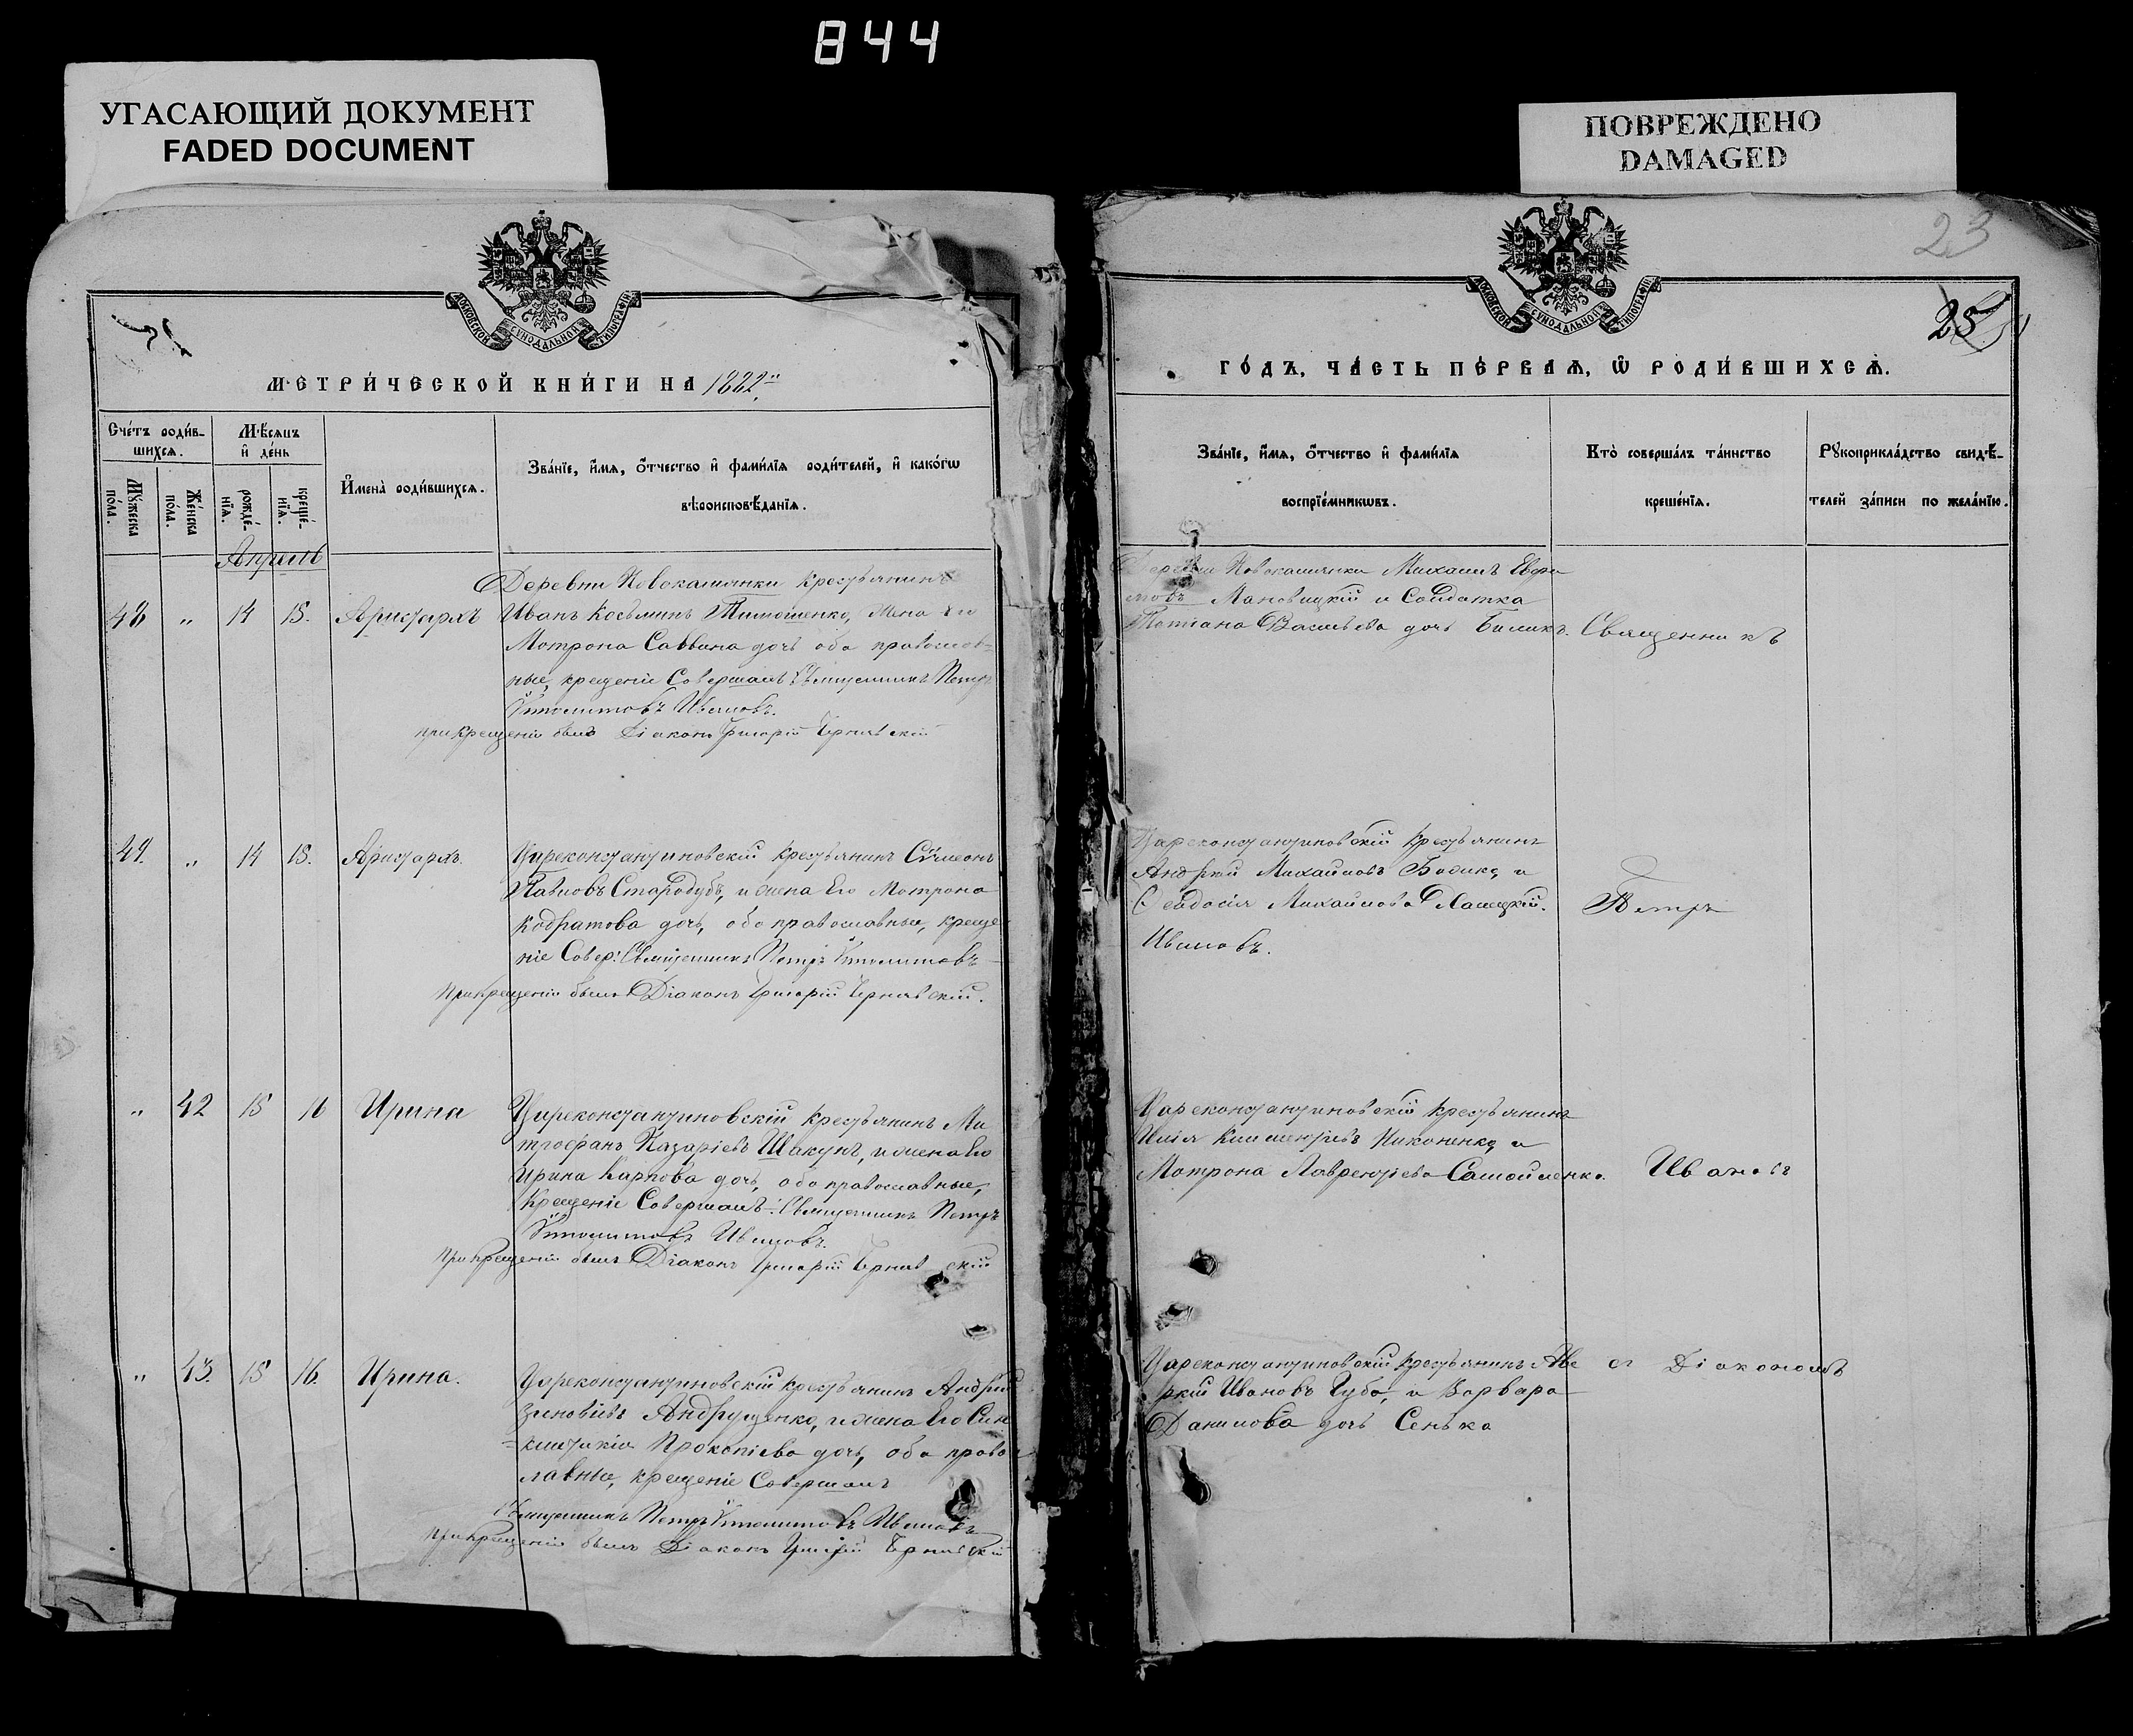 844
УГАСАЮЩИЙ ДОКУМЕНТ
FADED DOCUMENT
ПОВРЕЖДЕНО
DAMAGED
МОСКОВСКОЙ СѴНОДАЛЬНОЙ ТИПОГРАФІИ
МЕТРИ́ЧЕСКОЙ КНИ́ГИ НА 1882
Сче́тъ роди́в-
шихсѧ.
Мѣ́сѧцъ
и҆ де́нь
Мꙋ́жеска
по́ла.
Же́нска
по́ла.
рожде́-
нїѧ.
креще́-
нїѧ.
И҆мена̀ роди́вшихсѧ.
Зва́нїе, и҆́мѧ, ѻ҆́тчество и҆ фами́лїѧ роди́телей, и҆ како́гѡ
вѣроисповѣ́данїѧ.
Апрель
Деревни Новокаменки крестьянинъ
„ 14 15. Аристархъ Иванъ Косьминъ Тимошенко, жена его
Мотрона Саввина дочь оба православ-
ные, крещеніе Совершалъ Священникъ Петръ
Ипполитовъ Ивановъ.
при крещеніи былъ Діаконъ Григорій Чернявскій
„ 14 15. Аристархъ. Цареконстантиновскій крестьянинъ Сѵмеонъ
Павловъ Стародубъ, и жена Его Мотрона
Кодратова дочь, оба православные, креще-
ніе Совер: Священникъ Петръ Ипполитовъ
Ивановъ.
При крещеніи былъ Діаконъ Григорій Чернявскій.
„ 42 15 16 Ирина Цареконстантиновскій крестьянинъ Ми
трофанъ Назаріевъ Шакунъ, и жена Его
Ирина Карпова дочь, оба православные,
Крещеніе Совершалъ: Священникъ Петръ
Ипполитовъ Ивановъ.
При крещеніи былъ Діаконъ Григорій Чернявскій
„ 43. 15 16. Ирина. Цареконстантиновскій крестьянинъ Андрей
Зиновіевъ Андрущенко, и жена Его Син
клитикія Прокопіева дочь, оба право
лавные, крещеніе Совершалъ
Священникъ Петръ Ипполитовъ Ивановъ
При крещеніи былъ Діаконъ Григорій Чернявскій
23
25
МОСКОВСКОЙ СѴНОДАЛЬНОЙ ТИПОГРАФІИ
ГО́ДЪ, ЧА́СТЬ ПЕ́РВАѦ, Ѡ҆ РОДИ́ВШИХСѦ.
Зва́нїе, и҆́мѧ, ѻ҆́тчество и҆ фами́лїѧ
воспрїе́мникѡвъ.
Кто̀ соверша́лъ та́инство
креще́нїѧ.
Рꙋкоприкла́дство свидѣ́-
телей за́писи по жела́нїю.
Деревни Новокаменки Михаилъ
Мановицкій и Солдатка
Татіана Васильева дочь Биликъ. Священникъ
Цареконстантиновскій крестьянинъ
Андрей Михайловъ Бодика, и
Феодосія Михайлова Петръ
Цареконстантиновскій крестьянинъ
Илія Климентіевъ Никоненко, и
Мотрона Лаврентіева Самойленко. Ивановъ
Цареконстантиновскій крестьянинъ Аве съ Діакономъ
ркій Ивановъ Губа, и Варвара
Данилова дочь Сенька